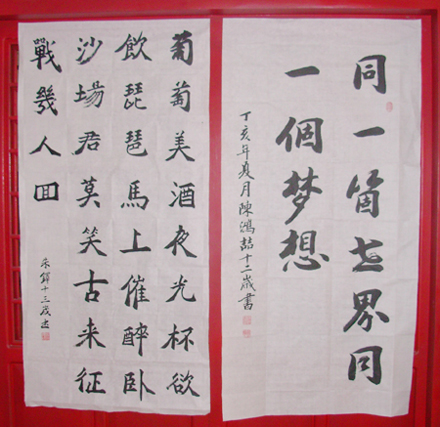 同一箇世界同
一個梦想
丁亥年夏月陳鴻喆十二歲書
葡萄美酒夜光杯欲
飲琵琶馬上催醉卧
沙場君莫笑古来征
戰幾人回
朱鐸十三歲書